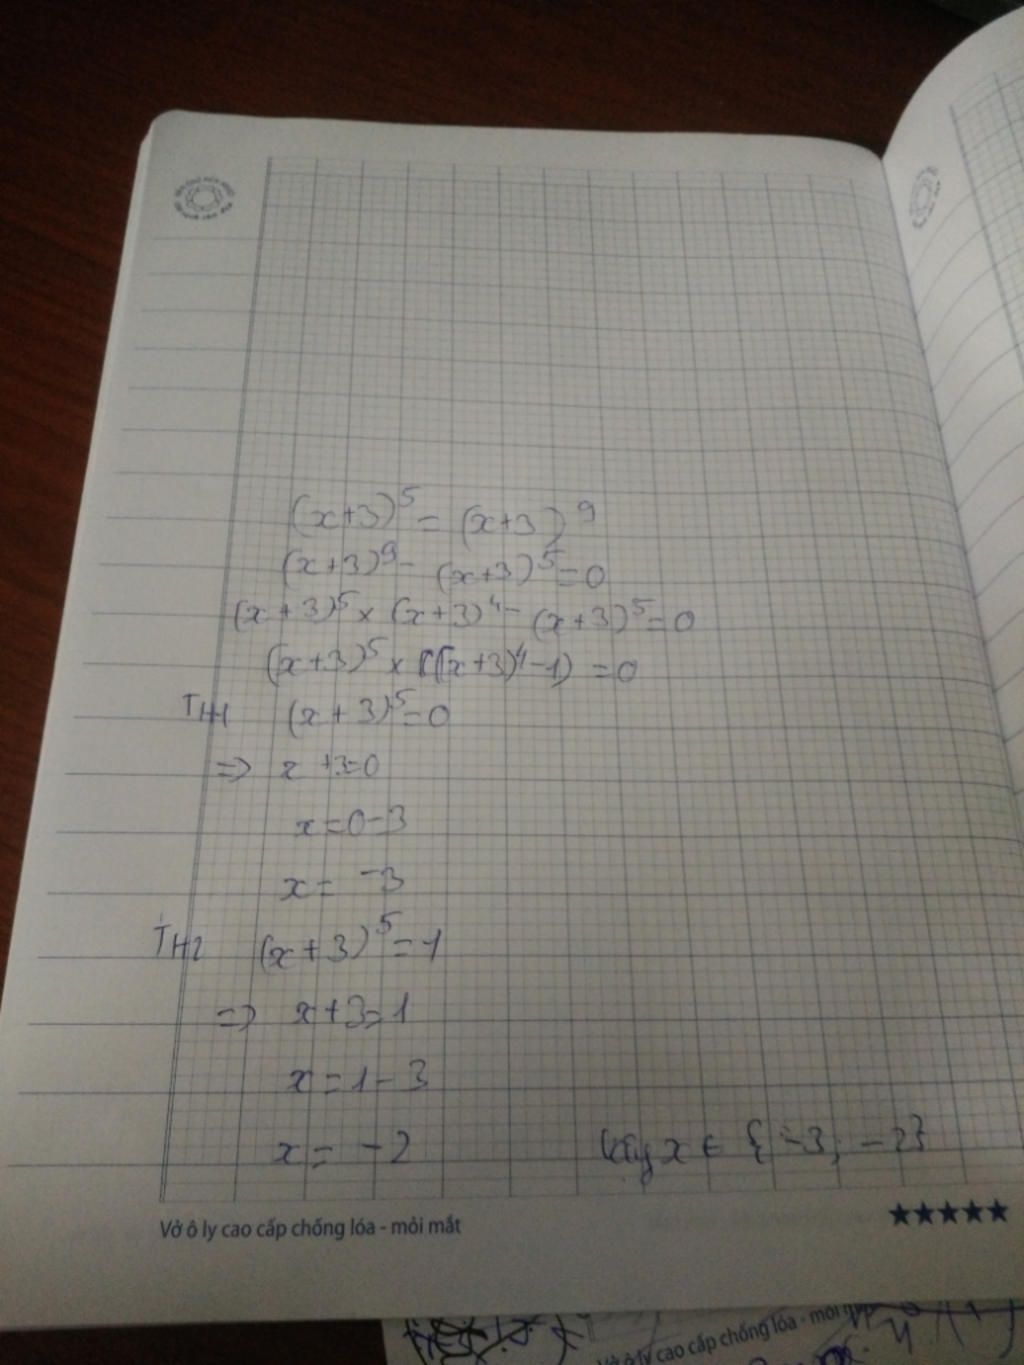 (x+3)^5 = (x+3)^9
(x+3)^9 - (x+3)^5 = 0
(x+3)^5 x (x+3)^4 - (x+3)^5 = 0
(x+3)^5 x ((x+3)^4 - 1) = 0
TH1 (x+3)^5 = 0
=> x +3=0
x = 0-3
x = -3
TH2 (x+3)^5 = 1
=> x+3=1
x = 1-3
x = -2
Vậy x ∈ {-3; -2}
Vở ô ly cao cấp chống lóa - mỏi mắt
★★★★★
Vở ô ly cao cấp chống lóa - mỏi